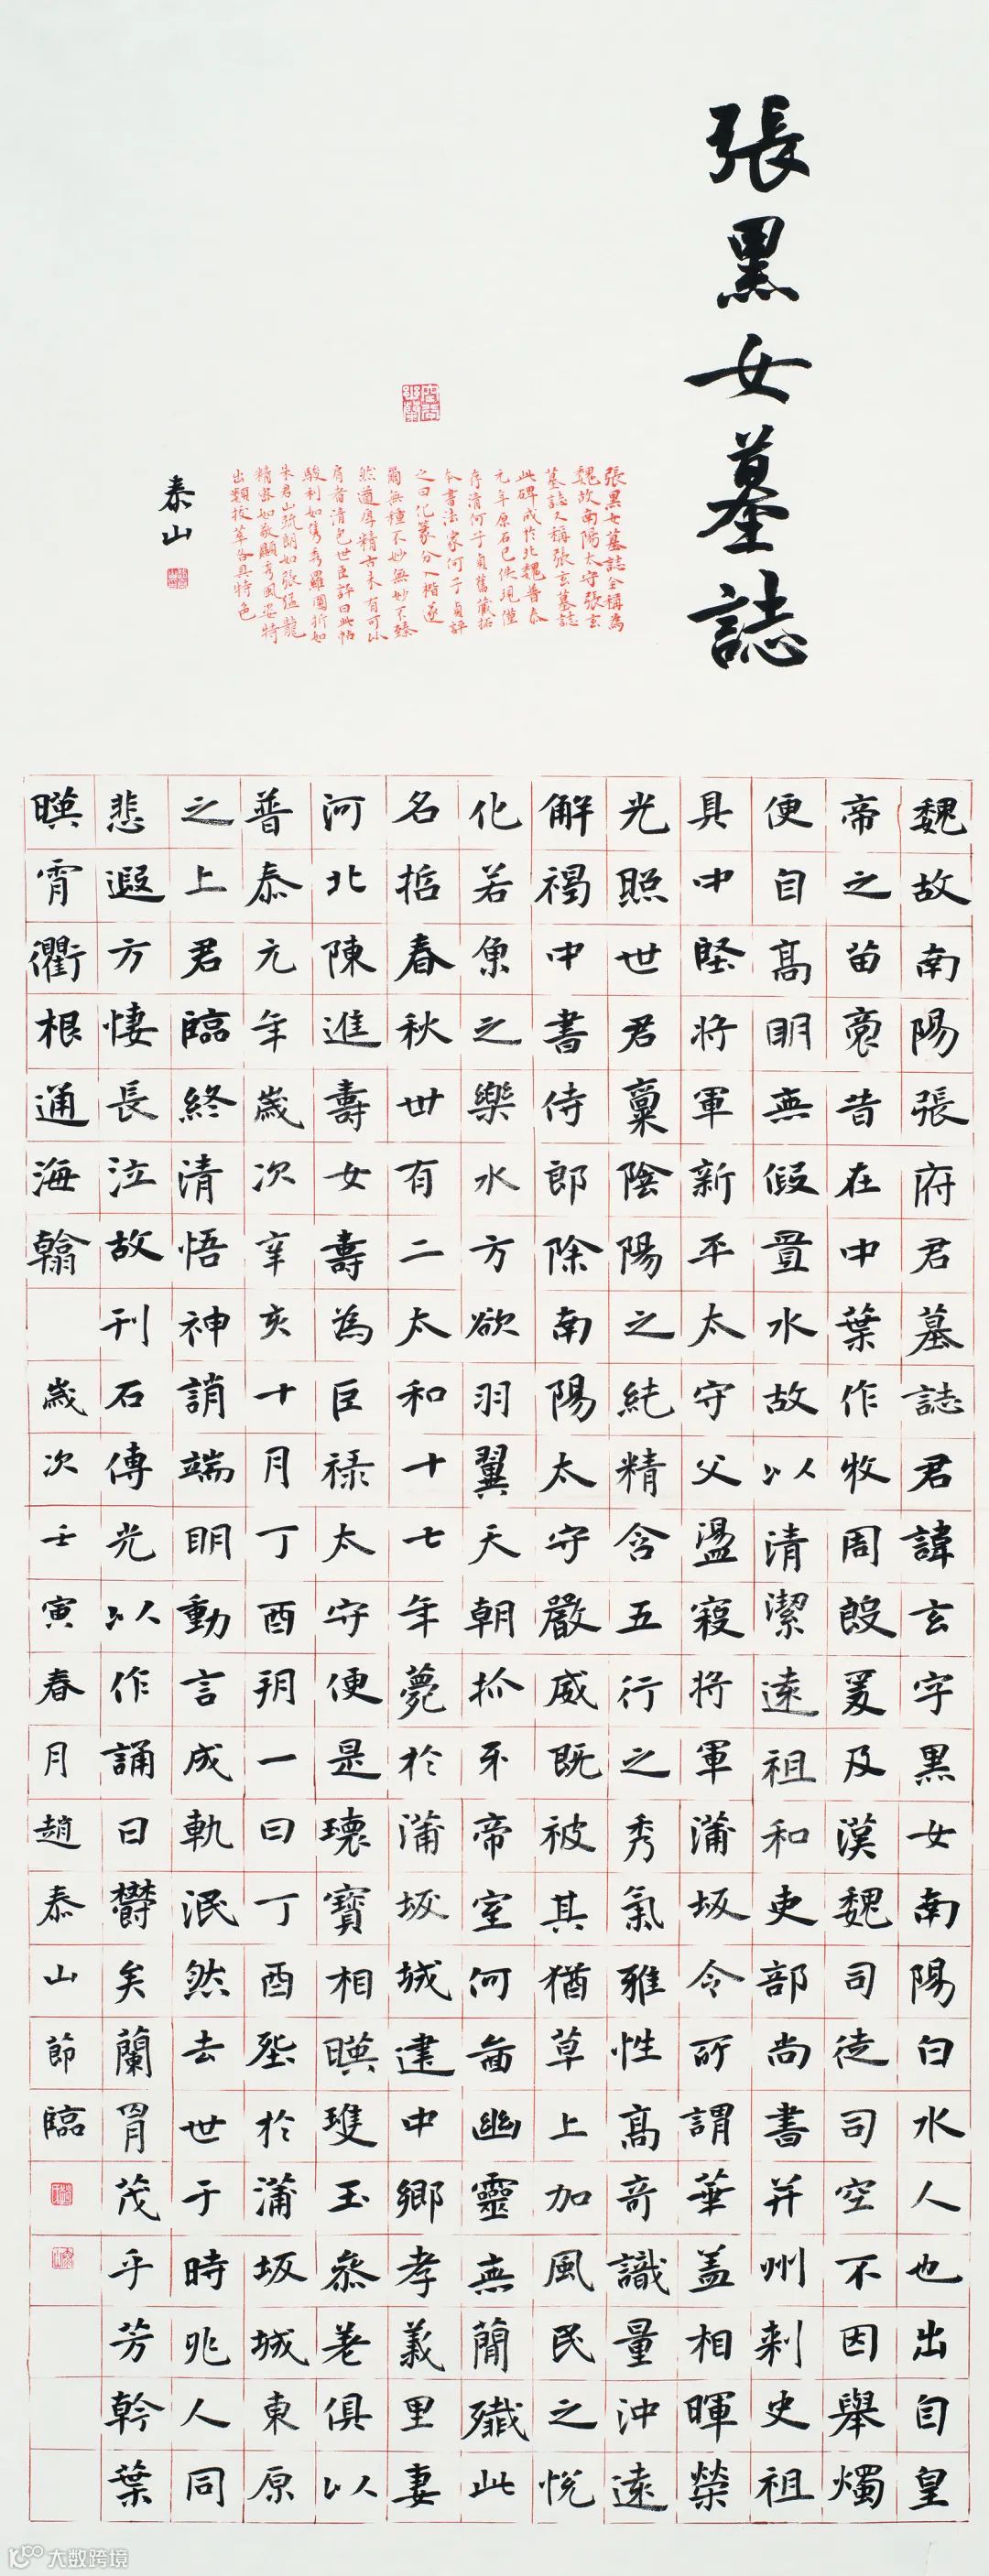 張黑女墓誌
張黑女墓誌全稱為
魏故南陽太守張玄
墓誌又稱張玄墓誌
此碑成於北魏普泰
元年原石已佚現僅
存清何子貞舊藏拓
本書法家何子貞評
之曰化篆分入楷遂
爾無種不妙無妙不臻
然遒厚精古未有可比
肩者清包世臣評曰此帖
駿利如雋秀羅圓折如
朱君山疏朗如張猛龍
精密如敬顯雋風姿特
出類拔萃各具特色
泰山
魏故南陽張府君墓誌君諱玄字黑女南陽白水人也出自皇
帝之苗裔昔在中葉作牧周殷爰及漢魏司徒司空不因舉燭
便自高明無假置水故以清潔遠祖和吏部尚書并州刺史祖
具中堅將軍新平太守父盪寇將軍蒲坂令所謂華蓋相暉榮
光照世君稟陰陽之純精含五行之秀氣雅性高奇識量沖遠
解褐中書侍郎除南陽太守嚴威既被其猶草上加風民之悅
化若魚之樂水方欲羽翼天朝抓牙帝室何啚幽靈無簡殲此
名哲春秋卅有二太和十七年薨於蒲坂城建中鄉孝義里妻
河北陳進壽女壽為巨祿太守便是瓌寶相暎瓊玉參差俱以
普泰元年歲次辛亥十月丁酉朔一日丁酉葬於蒲坂城東原
之上君臨終清悟神誚端明動言成軌泯然去世于時兆人同
悲遐方悽長泣故刊石傳光以作誦曰鬱矣蘭胄茂乎芳幹葉
暎霄衢根通海翰 歲次壬寅春月趙泰山節臨
大数跨境